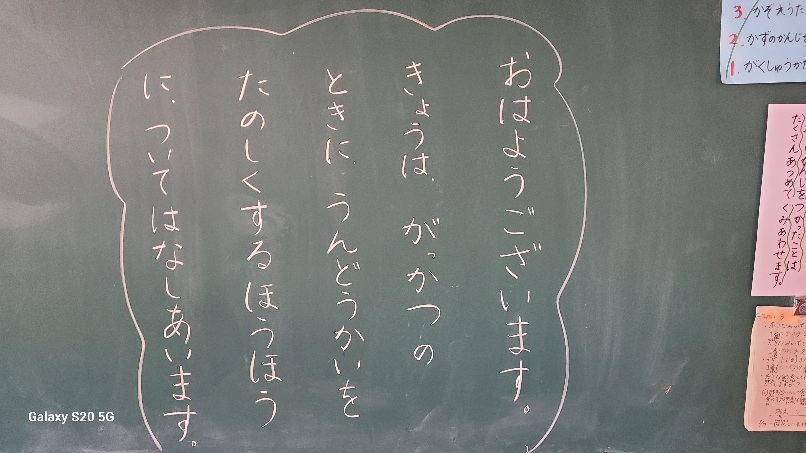 おはようございます。
きょうは、がっかつの
ときに、うんどうかいを
たのしくするほうほう
に、ついてはなしあいます。
3. かぞえうた
2. かずのかんじを
1. がくしゅうかた
つかったことば
たくさんあつめて くみあわせます。
Galaxy S20 5G